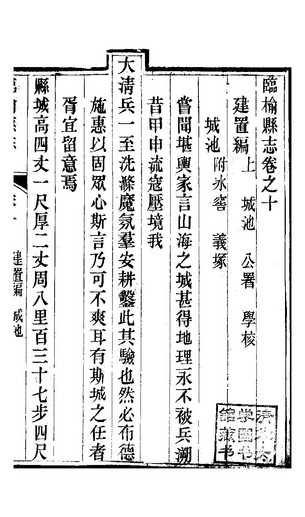 臨榆縣志卷之十
建置編上 城池 公署 學校
城池 附水窖 義塚
嘗聞堪輿家言山海之城甚得地理永不被兵溯
昔甲申流寇壓境我
大清兵一至洗滌魔氛羣安耕鑿此其驗也然必布德
施惠以固眾心斯言乃可不爽耳有斯城之任者
胥宜留意焉
縣城高四丈一尺厚二丈周八里百三十七步四尺
建置編 城池